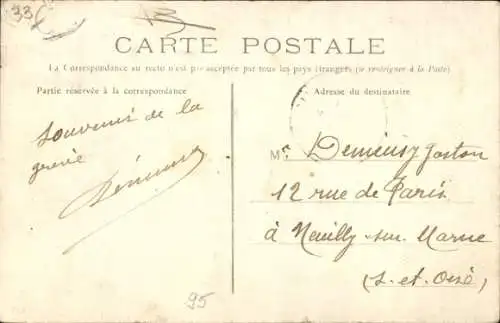 33
CARTE POSTALE
La Correspondance au recto n'est pas acceptée par tous les pays étrangers (se renseigner à la Poste)
Partie réservée à la correspondance
Adresse du destinataire
Souvenir de la
Mr Demeusy Gaston
12 rue de Paris
à Neuilly-sur-Marne
(S.-et-Oise)
95